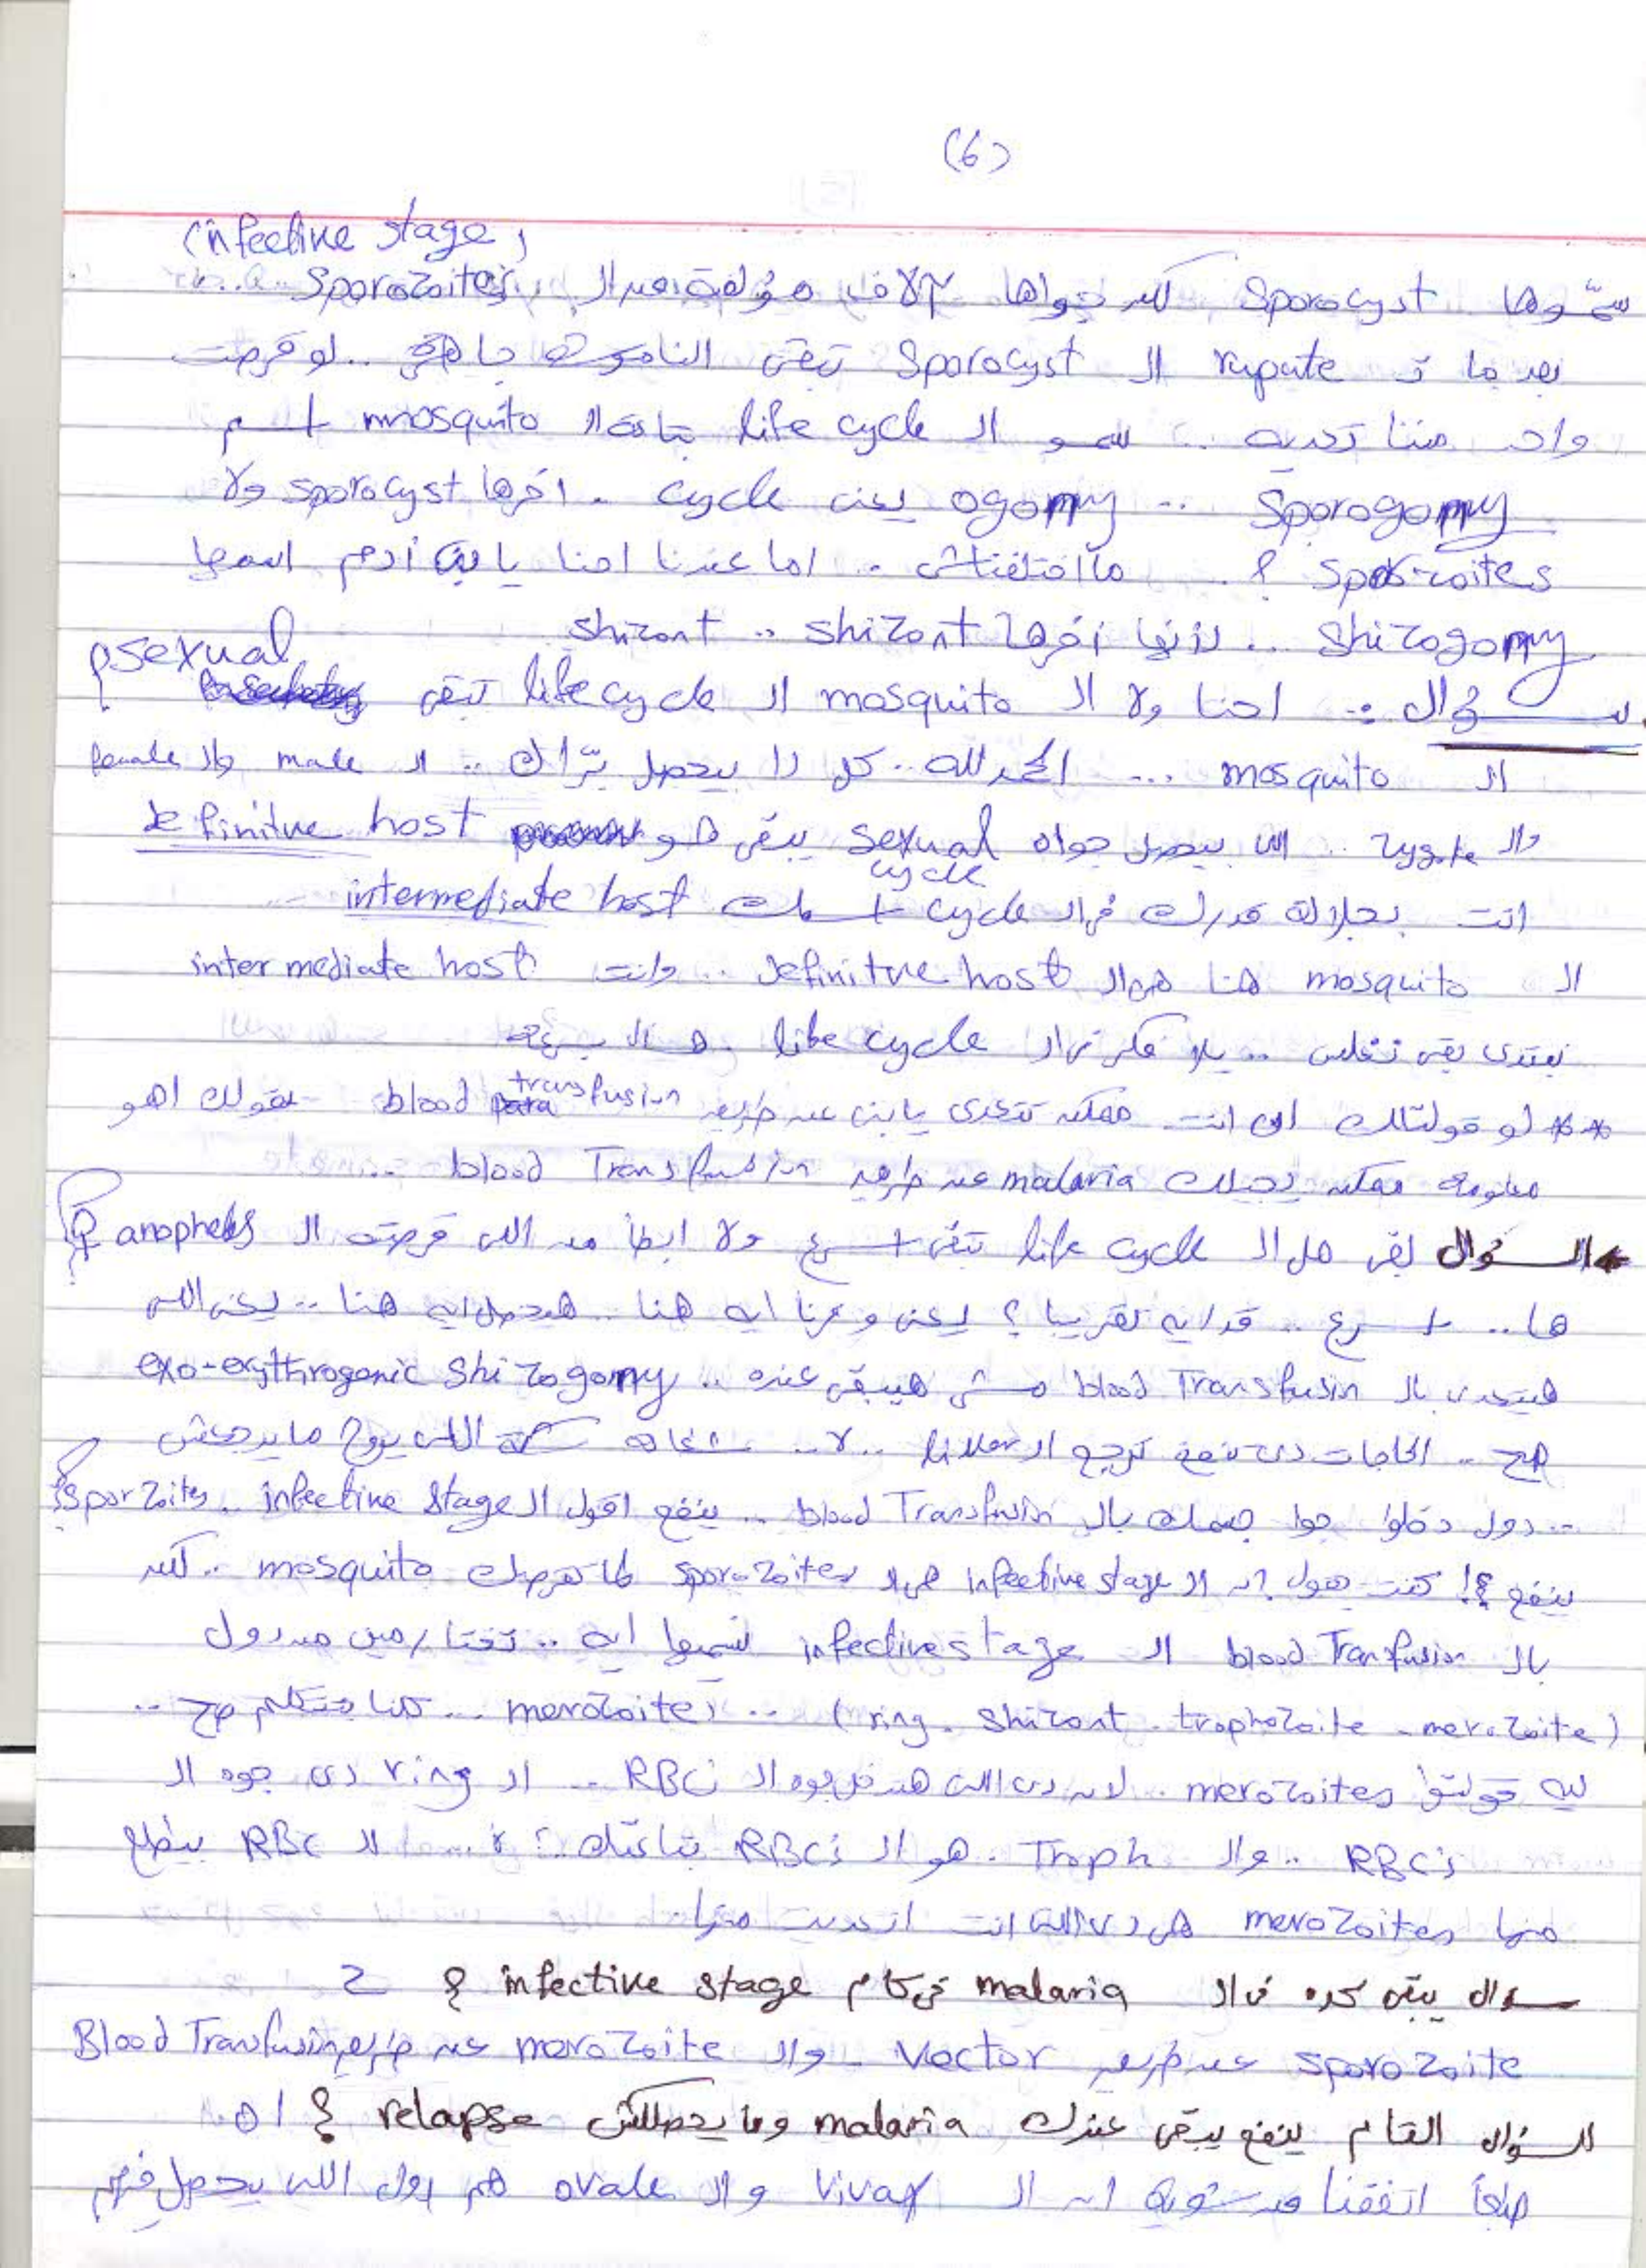 (6)
(infective stage)
سمّوها Sporocyst لكن جواها آلاف مؤلفة من الـ Sporozoites
بعد ما تـ rupate الـ Sporocyst تبقى الناموسة جاهزة .. لو قرصت
واحد مننا تعديه .. سمو الـ life cycle بتاعة الـ mosquito اسم
Sporogomy .. ogomy يعنى cycle . اخرها sporocyst ولا
sporozoites ؟ .. مااختلفناش .. اما عندنا احنا يا بنى أدم اسمها
shizogomy .. لأنها أخرها shizont .. shizont
سؤال :- احنا ولا الـ mosquito الـ life cycle تبقى sexual ؟
الـ mosquito ... الحمد لله .. كل دا بيحصل براك .. الـ male والـ female
والـ zygote .. اللى بيحصل جواه sexual cycle يبقى هو definitve host
انت بجلالة قدرك فى الـ cycle اسمك intermediate host
الـ mosquito هنا هى الـ definitve host .. وانت intermediate host
نبتدى بقى نغلس .. يلا فكر فى الـ life cycle
** لو قولتلك ان انت ممكن تتعدى يا بنى عن طريق blood transfusion بقولك اهو
معلومة ممكن يجيلك malaria عن طريق blood Transfusion ..
السؤال بقى هل الـ life cycle تبقى اسرع ولا ابطأ من اللى قرصته الـ anopheles ؟
ها .. اسرع .. قد ايه تقريبا ؟ يعنى وفرنا ايه هنا .. هيحصل ايه هنا .. يعنى اللى
هيتعدى بالـ blood Transfusin مش هيبقى عنده .. exo-erythrogenic shizogomy
صح .. الحاجات دى تنفع ترجع الـ liver .. لا .. اللى يروح مايرجعش
.. دول دخلوا جوا جسمك بالـ blood Transfusin .. ينفع اقول الـ infective stage .. Sporzoites ؟
ينفع ؟! كنت بقول ان الـ infective stage هى الـ sporozoites لما تقرصك mosquito .. لكن
بالـ blood Transfusion الـ infective stage نسميها ايه .. تختار مين من دول
(ring . shizont . trophozoite - merozoite) .. merozoites ... كلنا بنتكلم صح ..
ليه قولتوا merozoites . لان دى اللى هتدخل جوه الـ RBC's .. الـ ring دى جوه الـ
RBC's .. والـ Troph . هو الـ RBC's بتاعتك ؟ لا .... الـ RBC بيطلع
منها merozoites هى دى اللى انت اتعديت منها
سؤال يبقى كده فى الـ malaria فى كام infective stage ؟ 2
sporozoite عن طريق Vector - والـ merozoite عن طريق Blood Transfusin
السؤال القام ينفع يبقى عندك malaria وما يحصللكش relapse ؟ اه .
طبعاً اتفقنا من شوية ان الـ Vivax والـ ovale هم دول اللى يحصل فيهم